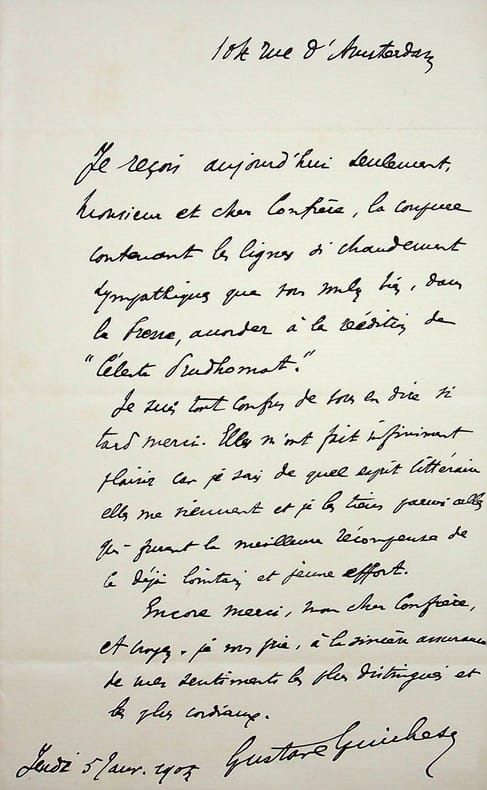 104 rue d'Amsterdam
Je reçois aujourd'hui seulement,
Monsieur et cher Confrère, la coupure
contenant les lignes si chaudement
sympathiques que vous voulez bien, dans
la Presse, accorder à la réédition de
"Céleste Prudhomat."
Je suis tout confus de vous en dire si
tard merci. Elles m'ont fait infiniment
plaisir car je sais de quel esprit littéraire
elles me viennent et je les tiens parmi celles
qui furent la meilleure récompense de
ce déjà lointain et jeune effort.
Encore merci, mon cher Confrère,
et croyez, je vous prie, à la sincère assurance
de mes sentiments les plus distingués et
les plus cordiaux.
Gustave Guiches
Jeudi 5 Janv. 1905